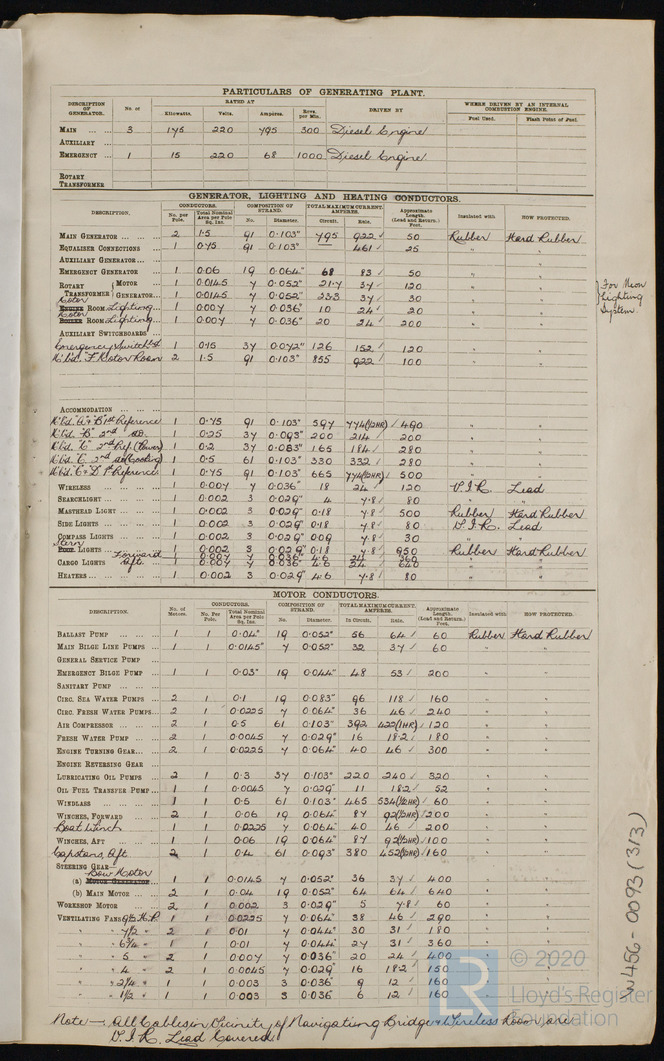 PARTICULARS OF GENERATING PLANT.
DESCRIPTION OF GENERATOR. No. of RATED AT DRIVEN BY WHERE DRIVEN BY AN INTERNAL COMBUSTION ENGINE.
Kilowatts. Volts. Amperes. Revs. per Min. Fuel Used. Flash Point of Fuel.
MAIN ... ... 3 175 220 795 300 Diesel Engine
AUXILIARY ...
EMERGENCY ... 1 15 220 68 1000 Diesel Engine
ROTARY TRANSFORMER
GENERATOR, LIGHTING AND HEATING CONDUCTORS.
DESCRIPTION. CONDUCTORS. COMPOSITION OF STRAND. TOTAL MAXIMUM CURRENT. AMPERES. Approximate Length. (Lead and Return.) Feet. Insulated with HOW PROTECTED.
No. per Pole. Total Nominal Area per Pole Sq. Ins. No. Diameter. Circuit. Rule.
MAIN GENERATOR ... ... 2 1.5 91 0.103" 795 922 ✓ 50 Rubber Hard Rubber
EQUALISER CONNECTIONS ... 1 0.75 91 0.103" 461 ✓ 25 " "
AUXILIARY GENERATOR ... ... " "
EMERGENCY GENERATOR ... 1 0.06 19 0.064" 68 83 ✓ 50 " "
ROTARY TRANSFORMER { MOTOR ... 1 0.0145 7 0.052" 21.7 37 ✓ 120 " " } For Neon Lighting System
GENERATOR... 1 0.0145 7 0.052" 23.3 37 ✓ 30 " "
Motor ENGINE ROOM Lighting... 1 0.007 7 0.036" 10 24 ✓ 20 " "
Motor BOILER ROOM Lighting... 1 0.007 7 0.036" 20 24 ✓ 200 " "
AUXILIARY SWITCHBOARDS
Emergency Switchbd 1 0.15 37 0.072" 126 152 ✓ 120 " "
W'Bd. F Motor Room 2 1.5 91 0.103" 855 922 100 " "
ACCOMMODATION ... ... ...
1 0.75 91 0.103" 597 774(½HR) ✓ 490 " "
1 0.25 37 0.093" 200 214 ✓ 200 " "
1 0.2 37 0.083" 165 184 ✓ 280 " "
1 0.5 61 0.103" 330 332 ✓ 280 " "
1 0.75 91 0.103" 665 774(½HR) ✓ 500 " "
WIRELESS ... ... ... 1 0.007 7 0.036" 18 24 ✓ 120 V.I.R. Lead
SEARCHLIGHT ... ... ... 1 0.002 3 0.029" 4 7.8 ✓ 80 " "
MASTHEAD LIGHT ... ... 1 0.002 3 0.029" 0.18 7.8 ✓ 500 Rubber Hard Rubber
SIDE LIGHTS ... ... ... 1 0.002 3 0.029" 0.18 7.8 ✓ 80 V.I.R. Lead
COMPASS LIGHTS ... ... 1 0.002 3 0.029" 0.09 7.8 ✓ 30
Stern POOP LIGHTS ... ... 1 0.002 3 0.029" 0.18 7.8 ✓ 950 Rubber Hard Rubber
Forward 1 0.007 7 0.036" 4.6 24 ✓ 360
CARGO LIGHTS Aft. 1 0.007 7 0.036" 4.6 24 ✓ 640 " "
HEATERS ... ... ... 1 0.002 3 0.029" 4.6 7.8 ✓ 80 " "
MOTOR CONDUCTORS.
DESCRIPTION. No. of Motors. CONDUCTORS. COMPOSITION OF STRAND. TOTAL MAXIMUM CURRENT. AMPERES. Approximate Length. (Lead and Return.) Feet. Insulated with HOW PROTECTED.
No. Per Pole. Total Nominal Area per Pole Sq. Ins. No. Diameter. In Circuit. Rule.
BALLAST PUMP ... ... 1 1 0.04" 19 0.052" 56 64 ✓ 60 Rubber Hard Rubber
MAIN BILGE LINE PUMPS ... 1 1 0.0145" 7 0.052" 32 37 ✓ 60 " "
GENERAL SERVICE PUMP ...
EMERGENCY BILGE PUMP ... 1 1 0.03" 19 0.044" 48 53 ✓ 200 " "
SANITARY PUMP ... ...
CIRC. SEA WATER PUMPS ... 2 1 0.1 19 0.083" 96 118 ✓ 160 " "
CIRC. FRESH WATER PUMPS... 2 1 0.0225 7 0.064" 36 46 ✓ 240 " "
AIR COMPRESSOR ... ... 2 1 0.5 61 0.103" 392 422(1HR) ✓ 120 " "
FRESH WATER PUMP ... 2 1 0.0045 7 0.029" 16 18.2 ✓ 180 " "
ENGINE TURNING GEAR... ... 2 1 0.0225 7 0.064" 40 46 ✓ 300 " "
ENGINE REVERSING GEAR ...
LUBRICATING OIL PUMPS ... 2 1 0.3 37 0.103" 220 240 ✓ 320 " "
OIL FUEL TRANSFER PUMP ... 1 1 0.0045 7 0.029" 11 18.2 ✓ 52 " "
WINDLASS ... ... ... 1 1 0.5 61 0.103" 465 534(½HR) ✓ 60 " "
WINCHES, FORWARD ... 2 1 0.06 19 0.064" 87 92(½HR) ✓ 200 " "
Boat Winch 1 1 0.0225 7 0.064" 40 46 ✓ 200 " "
WINCHES, AFT ... ... 1 1 0.06 19 0.064" 87 92(½HR) ✓ 100 " "
Capstans, Aft. 2 1 0.4 61 0.093" 380 452(½HR) ✓ 160 " "
STEERING GEAR—
(a) MOTOR GENERATOR ... 1 1 0.0145 7 0.052" 36 37 ✓ 400 " "
(b) MAIN MOTOR ... ... 2 1 0.04 19 0.052" 64 64 ✓ 640 " "
WORKSHOP MOTOR ... 2 1 0.002 3 0.029" 5 7.8 ✓ 60 " "
VENTILATING FANS 9½ H.P. 1 1 0.0225 7 0.064" 38 46 ✓ 290 " "
" 7½ " 2 1 0.01 7 0.044" 30 31 ✓ 180 " "
" 6¾ " 1 1 0.01 7 0.044" 27 31 ✓ 360 " "
" 5 " 2 1 0.007 7 0.036" 20 24 ✓ 400 " "
" 4 " 2 1 0.0045 7 0.029" 16 18.2 ✓ 150 " "
" 2¼ " 1 1 0.003 3 0.036" 9 12 ✓ 160
" 1½ " 1 1 0.003 3 0.036" 6 12 ✓ 160
Note — All Cables in Vicinity of Navigating Bridge & Wireless Room are
V.I.R. Lead Covered
W456-0093 (3/3)
LR
© 2020
Lloyd's Register
Foundation